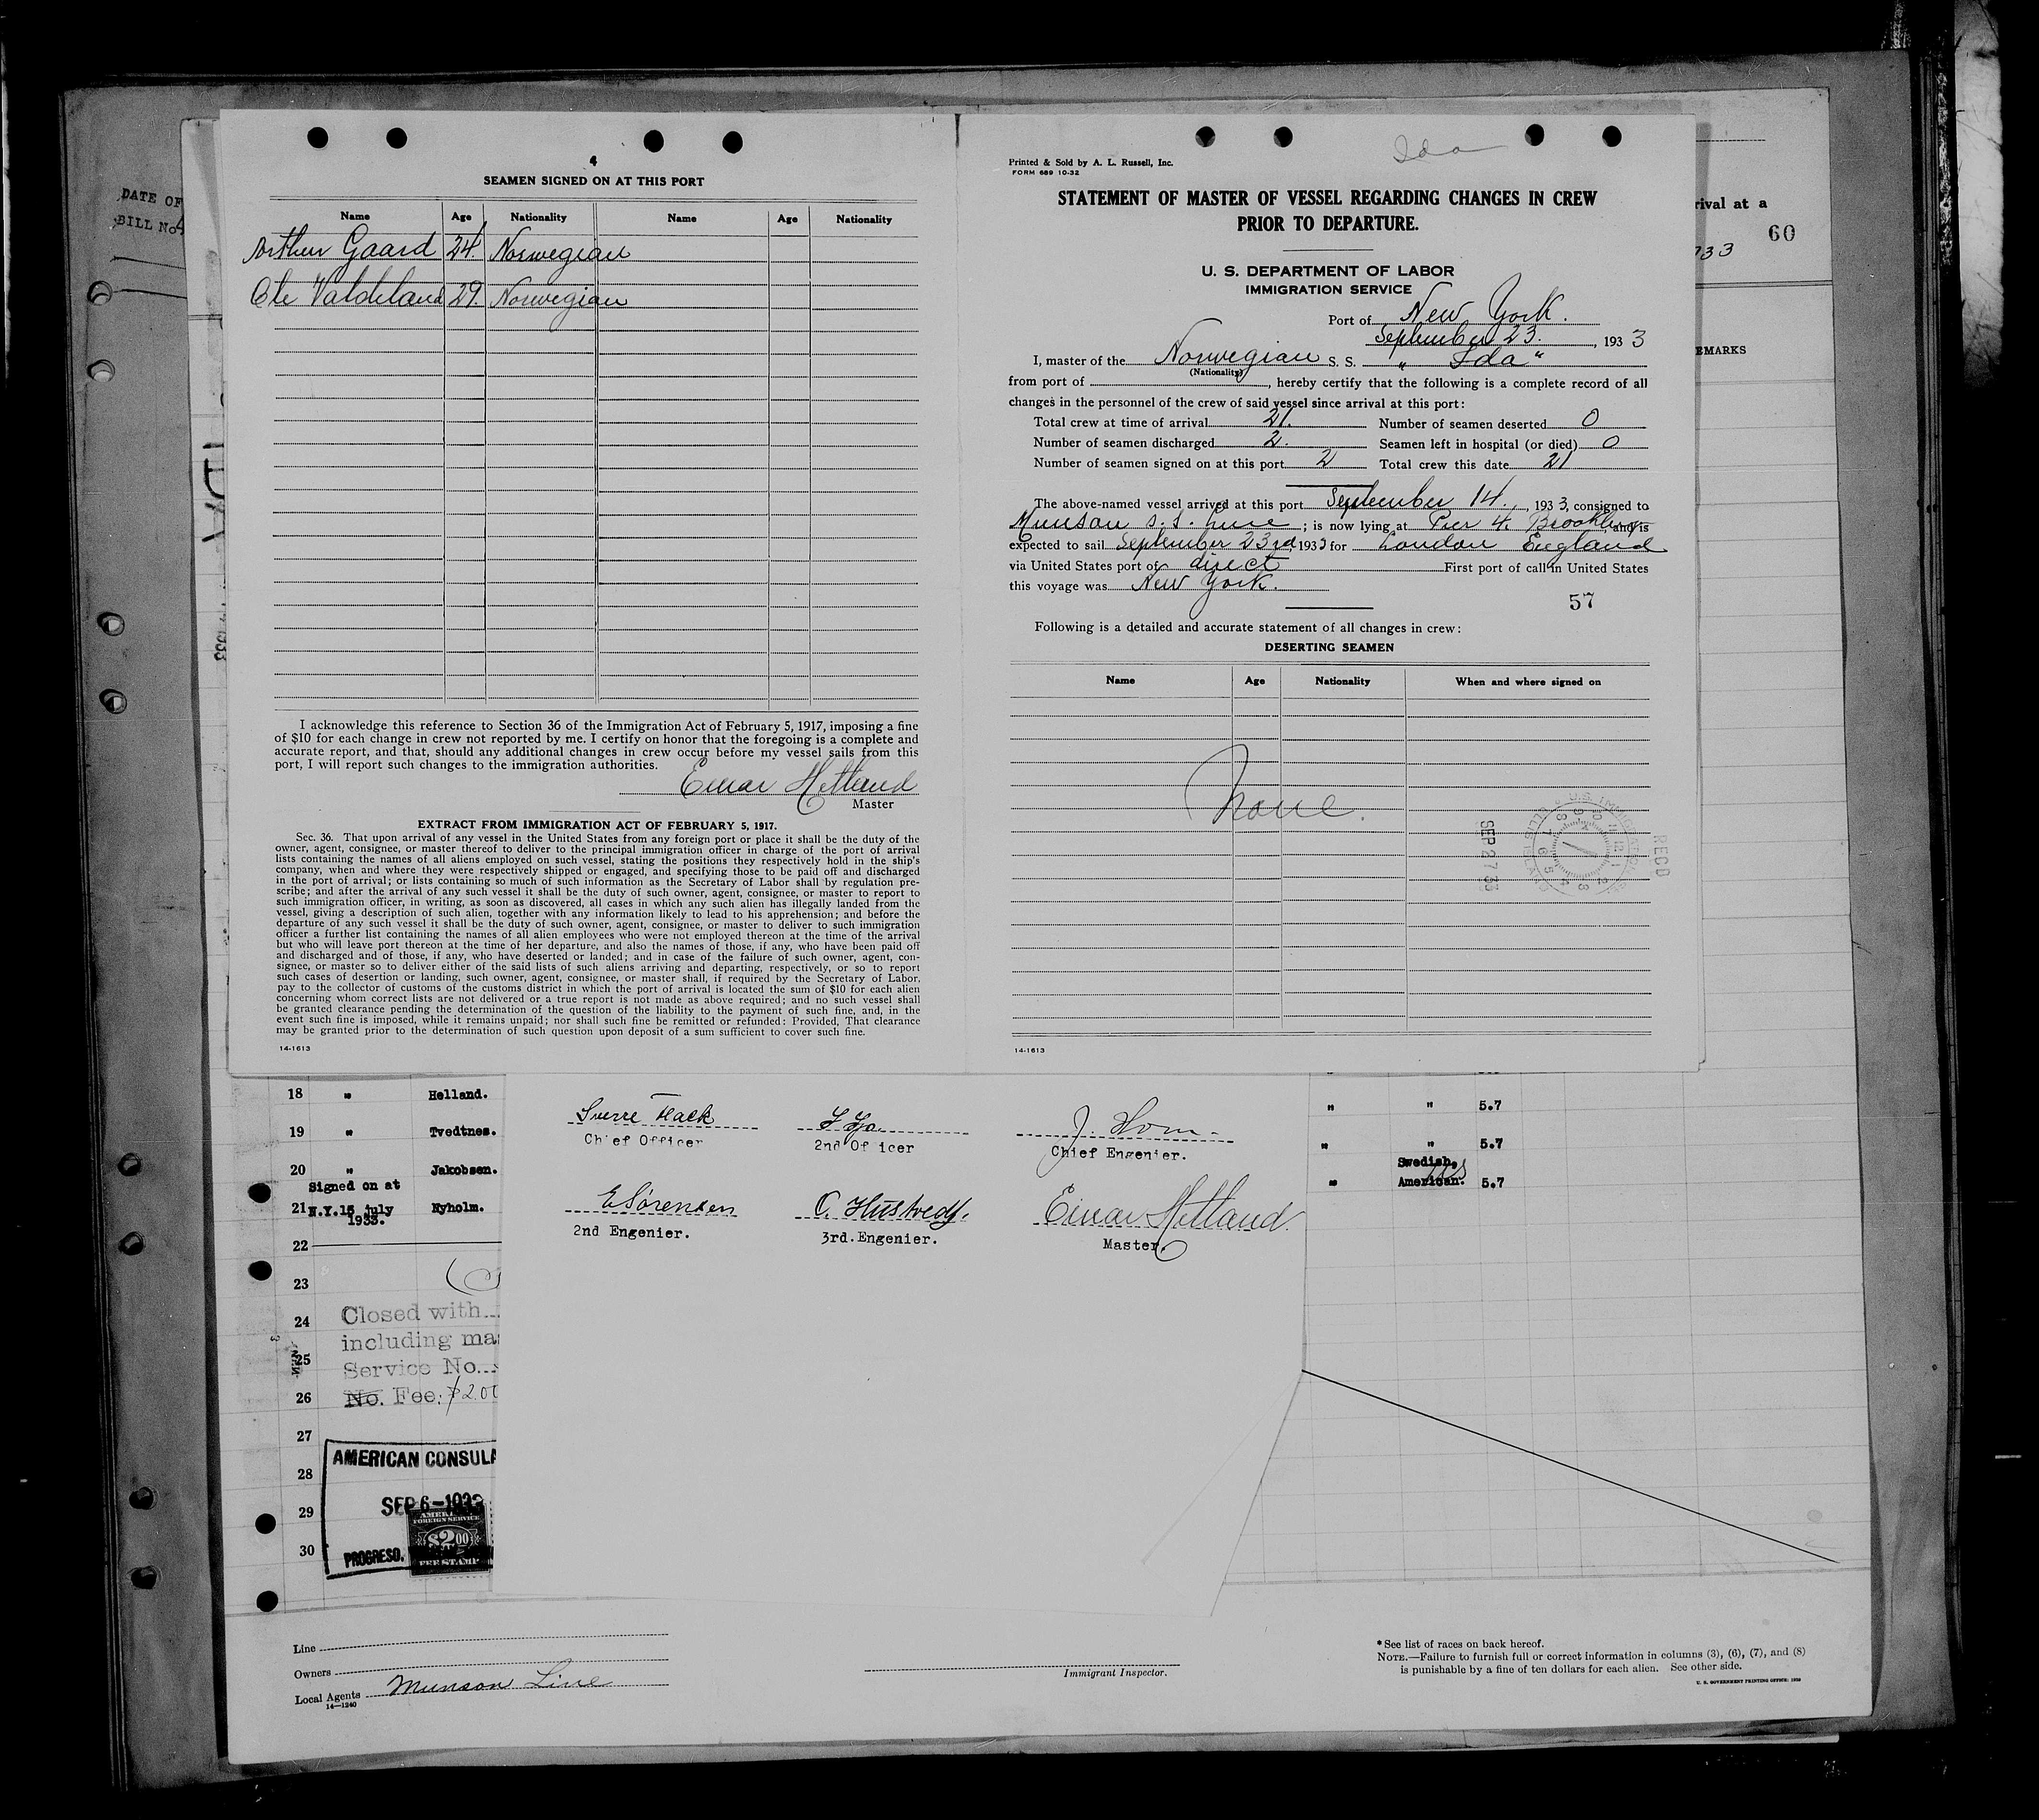 DATE OF
BILL No
4
SEAMEN SIGNED ON AT THIS PORT
Name Age Nationality Name Age Nationality
Arthur Gaard 24. Norwegian
Ole Valdeland 29. Norwegian
I acknowledge this reference to Section 36 of the Immigration Act of February 5, 1917, imposing a fine
of $10 for each change in crew not reported by me. I certify on honor that the foregoing is a complete and
accurate report, and that, should any additional changes in crew occur before my vessel sails from this
port, I will report such changes to the immigration authorities.
Einar Hetland
Master
EXTRACT FROM IMMIGRATION ACT OF FEBRUARY 5, 1917.
Sec. 36. That upon arrival of any vessel in the United States from any foreign port or place it shall be the duty of the
owner, agent, consignee, or master thereof to deliver to the principal immigration officer in charge of the port of arrival
lists containing the names of all aliens employed on such vessel, stating the positions they respectively hold in the ship's
company, when and where they were respectively shipped or engaged, and specifying those to be paid off and discharged
in the port of arrival; or lists containing so much of such information as the Secretary of Labor shall by regulation pre-
scribe; and after the arrival of any such vessel it shall be the duty of such owner, agent, consignee, or master to report to
such immigration officer, in writing, as soon as discovered, all cases in which any such alien has illegally landed from the
vessel, giving a description of such alien, together with any information likely to lead to his apprehension; and before the
departure of any such vessel it shall be the duty of such owner, agent, consignee, or master to deliver to such immigration
officer a further list containing the names of all alien employees who were not employed thereon at the time of the arrival
but who will leave port thereon at the time of her departure, and also the names of those, if any, who have been paid off
and discharged and of those, if any, who have deserted or landed; and in case of the failure of such owner, agent, con-
signee, or master so to deliver either of the said lists of such aliens arriving and departing, respectively, or so to report
such cases of desertion or landing, such owner, agent, consignee, or master shall, if required by the Secretary of Labor,
pay to the collector of customs of the customs district in which the port of arrival is located the sum of $10 for each alien
concerning whom correct lists are not delivered or a true report is not made as above required; and no such vessel shall
be granted clearance pending the determination of the question of the liability to the payment of such fine, and, in the
event such fine is imposed, while it remains unpaid; nor shall such fine be remitted or refunded: Provided, That clearance
may be granted prior to the determination of such question upon deposit of a sum sufficient to cover such fine.
14-1613
Ida
Printed & Sold by A. L. Russell, Inc.
FORM 689 10-32
STATEMENT OF MASTER OF VESSEL REGARDING CHANGES IN CREW
PRIOR TO DEPARTURE.
U. S. DEPARTMENT OF LABOR
IMMIGRATION SERVICE
Port of New York.
September 23. , 193 3
I, master of the Norwegian S. S. " Ida "
(Nationality)
from port of , hereby certify that the following is a complete record of all
changes in the personnel of the crew of said vessel since arrival at this port:
Total crew at time of arrival 21. Number of seamen deserted 0
Number of seamen discharged 2. Seamen left in hospital (or died) 0
Number of seamen signed on at this port 2 Total crew this date 21
The above-named vessel arrived at this port September 14., 193 3, consigned to
Munson S.S. Line ; is now lying at Pier 4. Brooklyn and is
expected to sail September 23rd, 193 3 for London England
via United States port of direct First port of call in United States
this voyage was New York.
57
Following is a detailed and accurate statement of all changes in crew:
DESERTING SEAMEN
Name Age Nationality When and where signed on
None.
REC'D
SEP 27 33
U.S. IMMIGRATION
ELLIS ISLAND
14-1613
rival at a
60
933
EMARKS
18 " Helland. " " 5.7
19 " Tvedtnes. " " 5.7
20 " Jakobsen. Swedish,
Signed on at " American. 5.7
21 N.Y. 15 july Nyholm.
1933.
22
23
24
25
26
27
28
29
30
Sverre
Chief Officer
2nd Of icer
J. Horn.
Chief Engenier.
E Sörensen
2nd Engenier.
C. Hustvedt.
3rd. Engenier.
Einar Hetland.
Master.
Closed with
including mas
Service No.
No. Fee: $2.00
AMERICAN CONSULA
SEP 6-1933
PROGRESO.
AMERI
FOREIGN SERVICE
$2.00
FEE STAMP
Line
Owners
Local Agents Munson Line
14-1240
Immigrant Inspector.
* See list of races on back hereof.
NOTE.—Failure to furnish full or correct information in columns (3), (6), (7), and (8)
is punishable by a fine of ten dollars for each alien. See other side.
U. S. GOVERNMENT PRINTING OFFICE: 1929